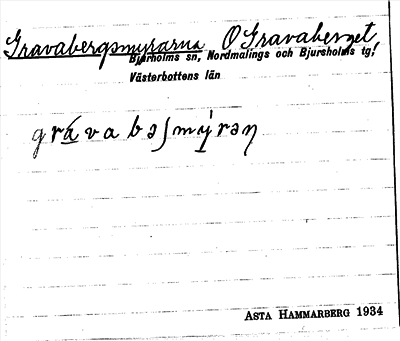 Gravabergsmyrarna O Gravaberget,
Bjurholms sn, Nordmalings och Bjurholms tg,
Västerbottens län
grávabəʃmýrəƞ
ASTA HAMMARBERG 1934